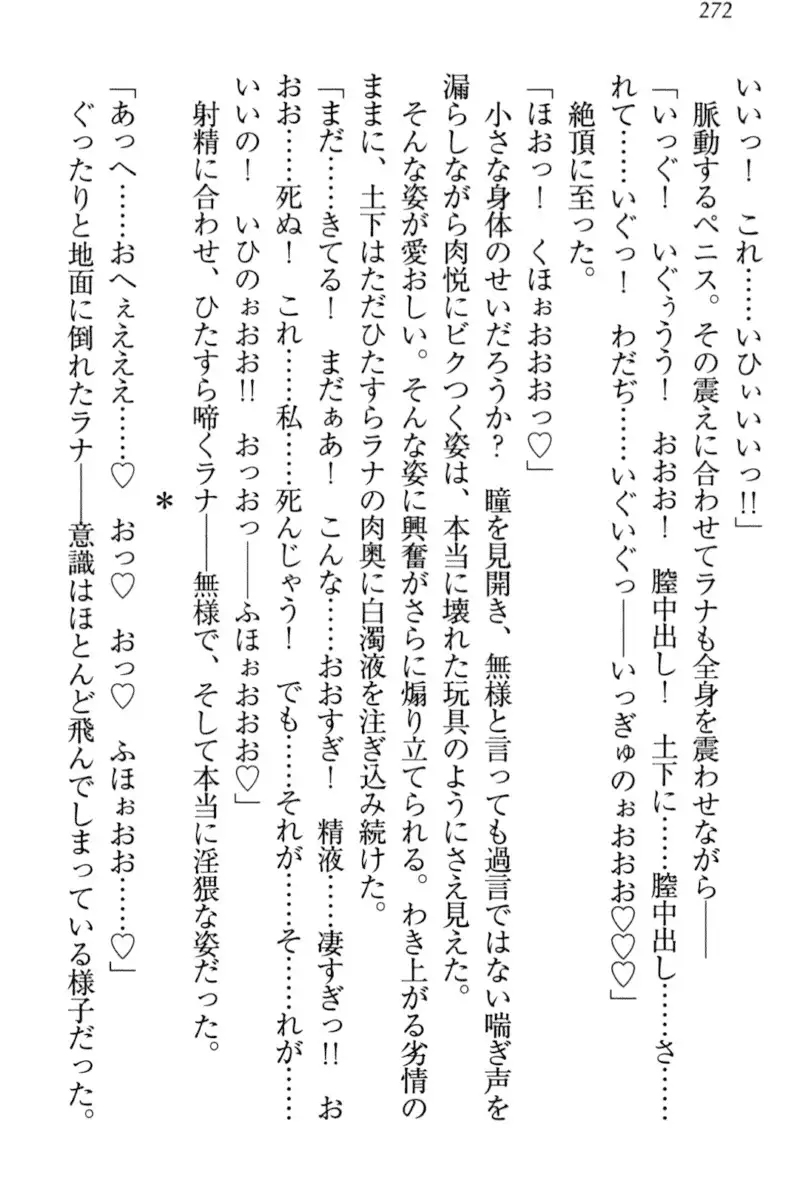 272
いいっ！　これ……いひぃいいっ!!」
脈動するペニス。その震えに合わせてラナも全身を震わせながら――
「いっぐ！　いぐぅうう！　おおお！　膣中出し！　土下に……膣中出し……さ……
れて……いぐっ！　わだぢ……いぐいぐっ――いっぎゅのぉおおお♡♡♡」
絶頂に至った。
「ほおっ！　くほぉおおおっ♡」
小さな身体のせいだろうか？　瞳を見開き、無様と言っても過言ではない喘ぎ声を
漏らしながら肉悦にビクつく姿は、本当に壊れた玩具のようにさえ見えた。
そんな姿が愛おしい。そんな姿に興奮がさらに煽り立てられる。わき上がる劣情の
ままに、土下はただひたすらラナの肉奥に白濁液を注ぎ込み続けた。
「まだ……きてる！　まだぁあ！　こんな……おおすぎ！　精液……凄すぎっ!!　お
おお……死ぬ！　これ……私……死んじゃう！　でも……それが……そ……れが……
いいの！　いひのぉおお!!　おっおっ――ふほぉおおお♡」
射精に合わせ、ひたすら啼くラナ――無様で、そして本当に淫猥な姿だった。
＊
「あっへ……おへぇえええ……♡　おっ♡　おっ♡　ふほぉおお……♡」
ぐったりと地面に倒れたラナ――意識はほとんど飛んでしまっている様子だった。